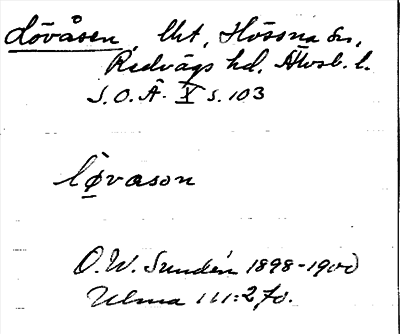 Lövåsen, lht, Hössna sn,
Redvägs hd. Älvsb. l.
S.O.Ä. X s. 103
løvason
O.W. Sundén 1898-1900
Ulma 111:270.